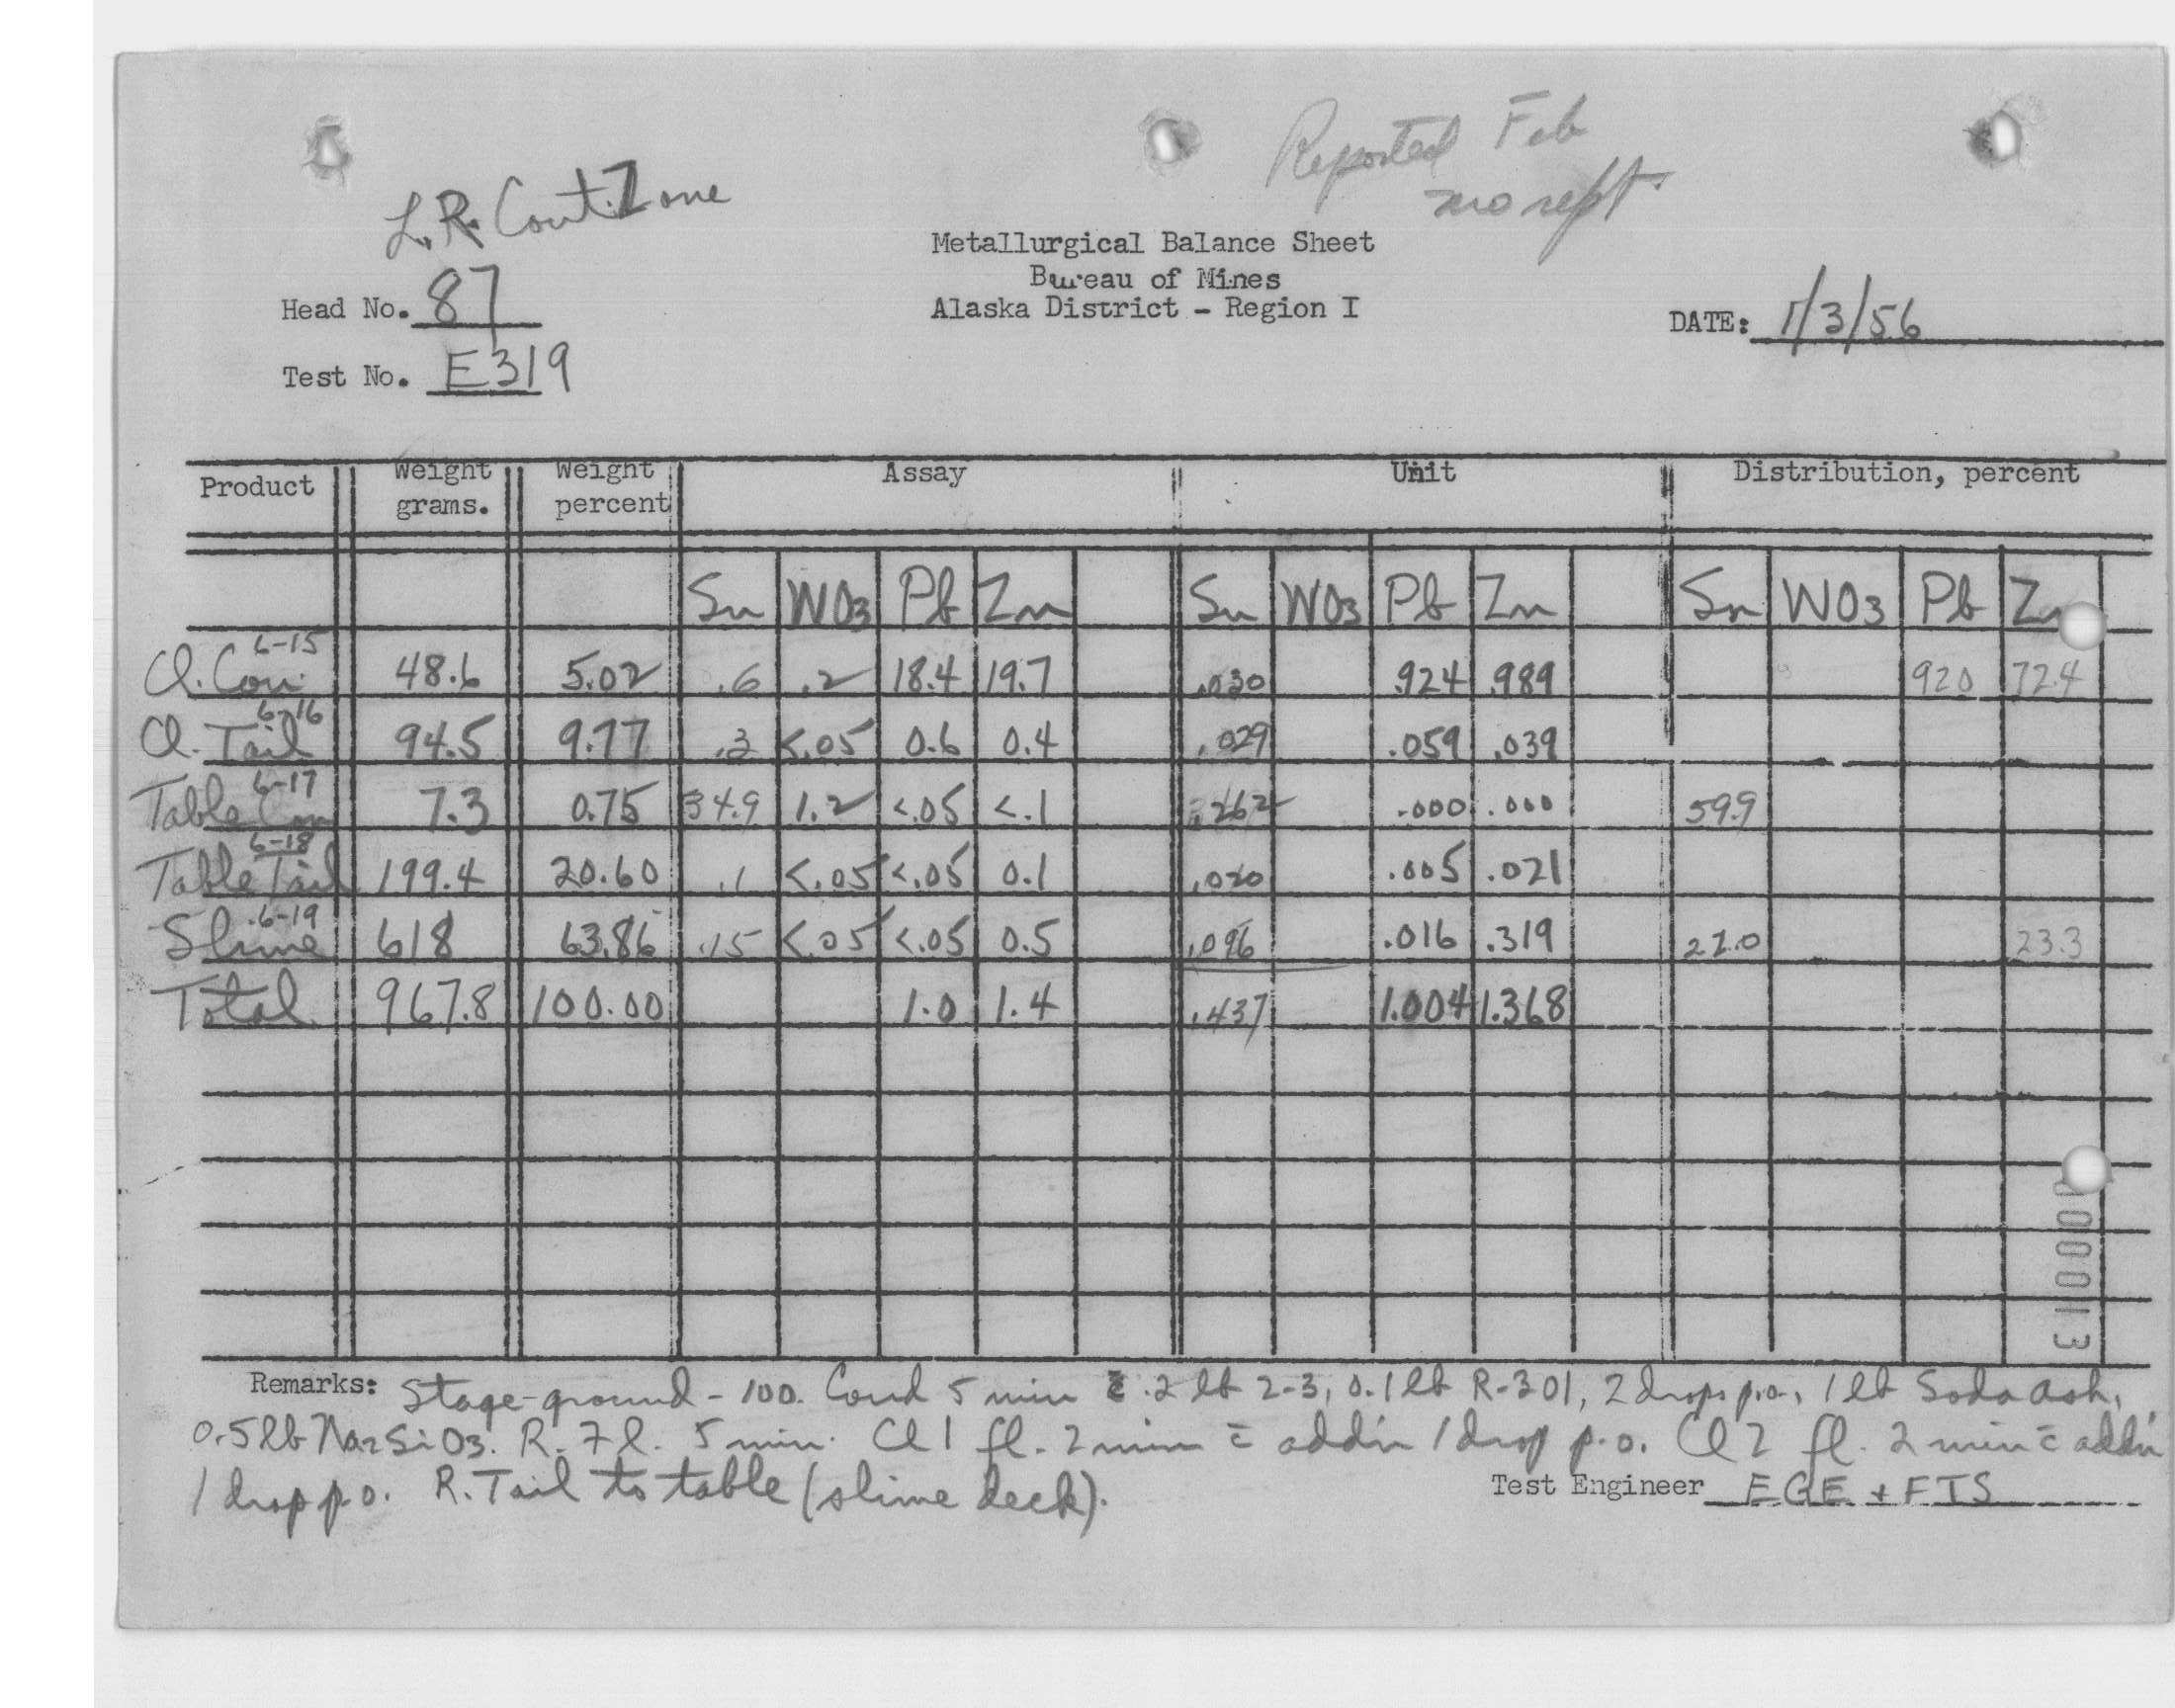 Reported Feb
mo rept
L.R. Cont. Zone
Metallurgical Balance Sheet
Bureau of Mines
Alaska District - Region I
Head No. 87
DATE: 1/3/56
Test No. E319
Product Weight grams. Weight percent Assay Unit Distribution, percent
Sn WO3 Pb Zn Sn WO3 Pb Zn Sn WO3 Pb Zn
6-15
Cl. Con. 48.6 5.02 .6 .2 18.4 19.7 .030 .924 .989 92.0 72.4
6-16
Cl. Tail 94.5 9.77 .3 <.05 0.6 0.4 .029 .059 .039
6-17
Table Con 7.3 0.75 34.9 1.2 <.05 <.1 .262 .000 .000 59.9
6-18
Table Tail 199.4 20.60 .1 <.05 <.05 0.1 .020 .005 .021
6-19
Slime 618 63.86 .15 <.05 <.05 0.5 .096 .016 .319 22.0 23.3
Total 967.8 100.00 1.0 1.4 .437 1.004 1.368
Remarks: Stage-ground - 100. Cond 5 min c̄ .2 lb Z-3, 0.1 lb R-301, 2 drops p.o., 1 lb Soda ash,
0.5 lb Na2SiO3. R. Fl. 5 min. Cl 1 fl. 2 min c̄ addn 1 drop p.o. Cl 2 fl. 2 min c̄ addn
1 drop p.o. R. Tail to table (slime deck).
Test Engineer EGE + FTS